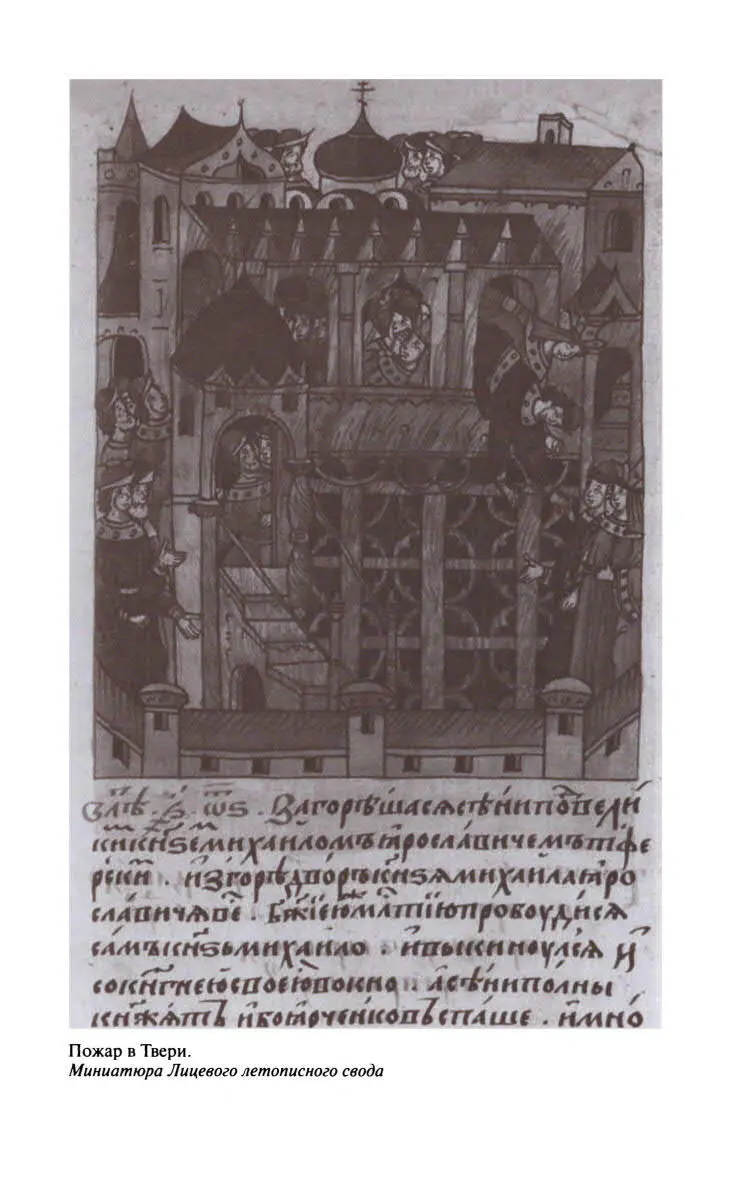 Загорѣшасѧ сѣни пѡⷣ вели
киⷨ кнꙁеⷨ михаиломъ ꙗрославичемъ тфе
рскиⷨ . и згорѣ дворъ кнꙁѧ михаила ꙗро
славичѧ веⷭ . бж҃їею млⷭ҇тїю пробоудисѧ
самъ кнꙁь михаило . и выкиноулсѧ и
со кнгнею своею в окно . а сѣни полны
кнѧжѧтъ и боꙗрченковъ спаше . и мно
Пожар в Твери.
Миниатюра Лицевого летописного свода